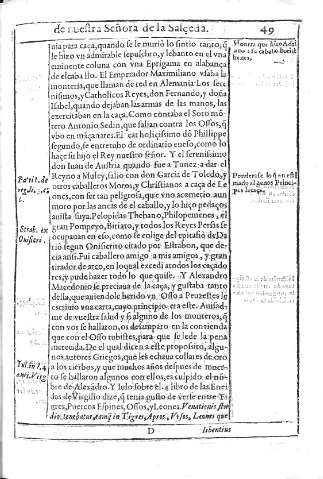 de nuestra Señora de la Salçeda. 49
nia para caça, quando se le murió lo sintio tanto, q̃
le hizo vn admirable sepulchro, y lebanto en vna
eminente coluna con vna Epigama en alabança
de el caballo. El Emperador Maximiliano vsaba la
monteria, que llaman de red en Alemania Los sere
nissimos, y Catholicos Reyes, don Fernando, y doña
Isabel, quando dejaban las armas de las manos, las
exercitaban en la caça. Como contaba el Soto mõ
tero Antonio Sedin, que salian contra los Ossos, q̃
vbo en mãçanares. El catholiçisimo dõ Phillippe
segundo, se entretubo de ordinario en eso, como lo
haçe su hijo el Rey nuestro señor. Y el serenissimo
don Iuan de Austria quando fue a Tunez a dar el
Reyno a Muley, salio con don Garcia de Toledo, y
otros caballeros Moros, y Christianos a caça de Le
ones, con ser tan peligrosa, que
moro por las ancas de el caballo, y lo hiço pedaços
suya. Pelopidas Thebano, Philopemenes, el
gran Pompeyo, Biriato, y todos los Reyes Persas se
ocuparon en eso, como se colige del epitafio de Da
rio segun Onisicrito citado por Estrabon, que de
cia ansi. Fui caballero amigo a mis amigos, y gran
tirador de arco, en lo qual excedi a todos los caçado
res, y pude hazer todo lo que quise. Y Alexandro
Macedonio se preciaua de la caça, y gustaba tanto
della, que auiendole herido vn Osso a Peuzestes le
escriuio vna carta, cuyo principio era este. Auisad
me de vuestra salud y si alguno de los monteros, q̃
con vos se hallaron, os desamparo en la contienda
que con el Osso tubistes, para que se le de la pena
mereçida. De el qual dicen a este proposito, algu
nos autores Griegos, que les echaua collares de oro
a los cierbos, y que muchos años despues de muer
to se hallaron algunos con ellos, es culpido el nõ
bre de Alexãdro. Y Iulo sobre el 4 libro de las Enei
das de Virgilio dize, q̃ tenia gusto de verse entre Ti
gres, Puercos Espines, Ossos, y Leones. Venationis stu
dio tenebatur, eratq́ in Tigres, Apros, Vrsos, Leones que
D libentius
Strab. ex
Onisicri.